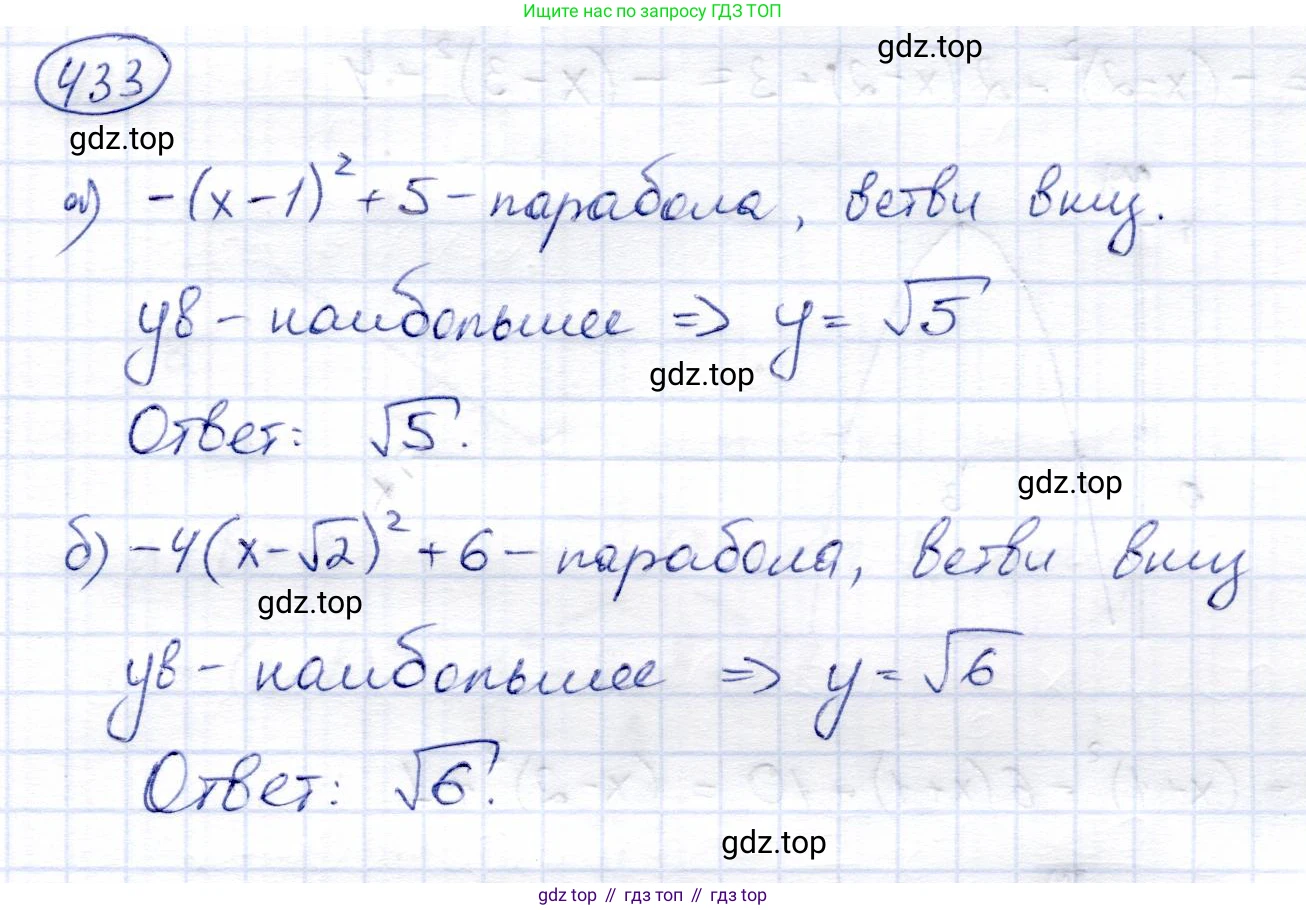 Ищите нас по запросу ГДЗ ТОП
gdz.top
433
gdz.top
а) -(x-1)² + 5 - парабола, ветви вниз.
yв - наибольшее => y = √5
gdz.top
Ответ: √5.
gdz.top
б) -4(x-√2)² + 6 - парабола, ветви вниз
gdz.top
yв - наибольшее => y = √6
Ответ: √6.
gdz.top
gdz top // гдз топ // гдз top